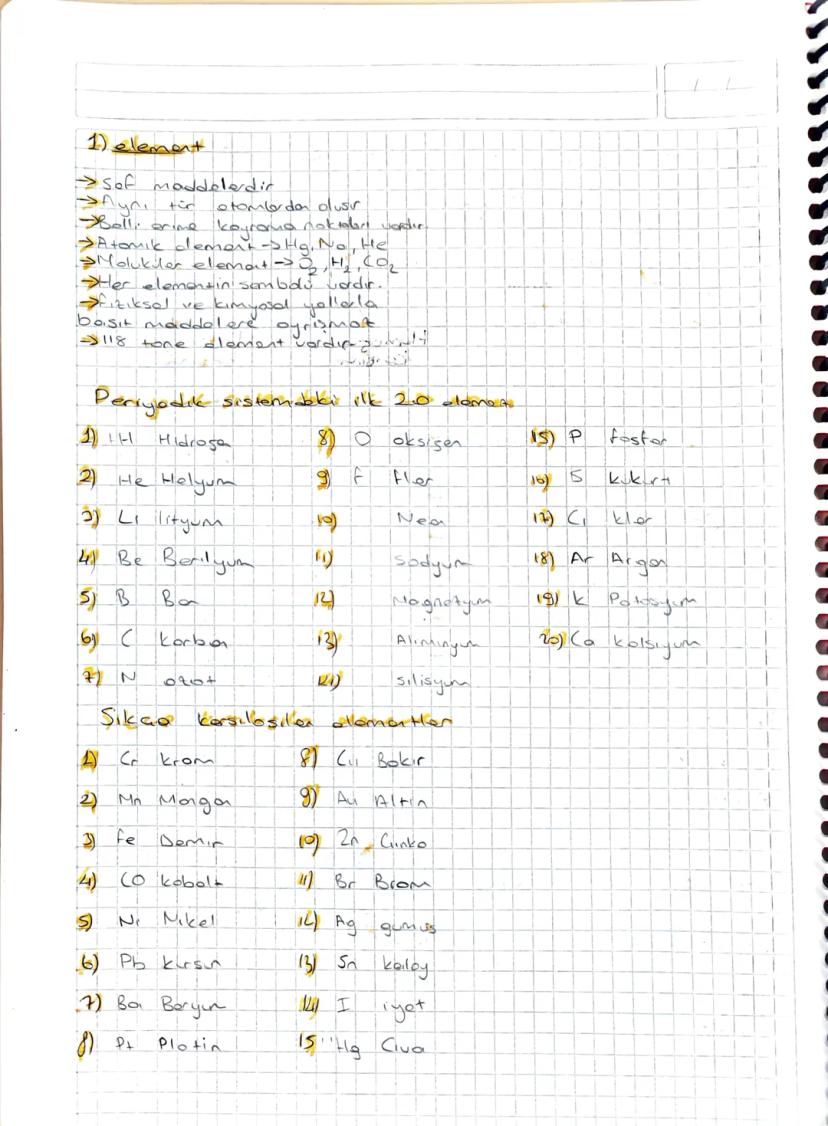 1) element
→ Saf maddelerdir
→ Aynı tür atomlardan oluşur
→ Belli erime kaynama noktaları vardır.
→ Atomik element → Hg, Na, He
→ Moluküler element → O2, H2, CO2
→ Her elementin sembolü vardır.
→ fiziksel ve kimyasal yollarla
basit maddelere ayrışmaz
→ 118 tane element vardır
Periyodik sistemdeki ilk 20 element
1) H Hidrogen
2) He Helyum
3) Li lityum
4) Be Berilyum
5) B Bor
6) C karbon
7) N azot
8) O oksigen
9) F flor
10) Neon
11) Sodyum
12) Magnetyum
13) Aliminyum
14) silisyum
15) P fosfor
16) S kükürt
17) Cl klor
18) Ar Argon
19) K Potasyum
20) Ca kalsiyum
Sıkça karşılaşılan elementler
1) Cr krom
2) Mn Mangan
3) Fe Demir
4) CO kobalt
5) Ni Nikel
6) Pb kurşun
7) Ba Baryum
8) Pt Platin
8) Cu Bakır
9) Au Altın
10) Zn Çinko
11) Br Brom
12) Ag gümüş
13) Sn kalay
14) I iyot
15 Hg Civa